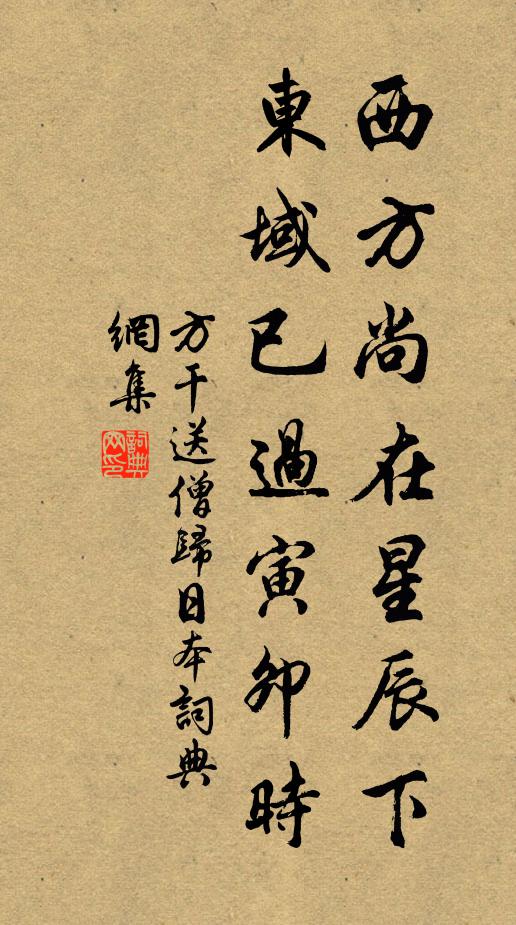 西方尚在星辰下
東域已過寅卯時
方干送僧歸日本詞典
網集
詞典網印